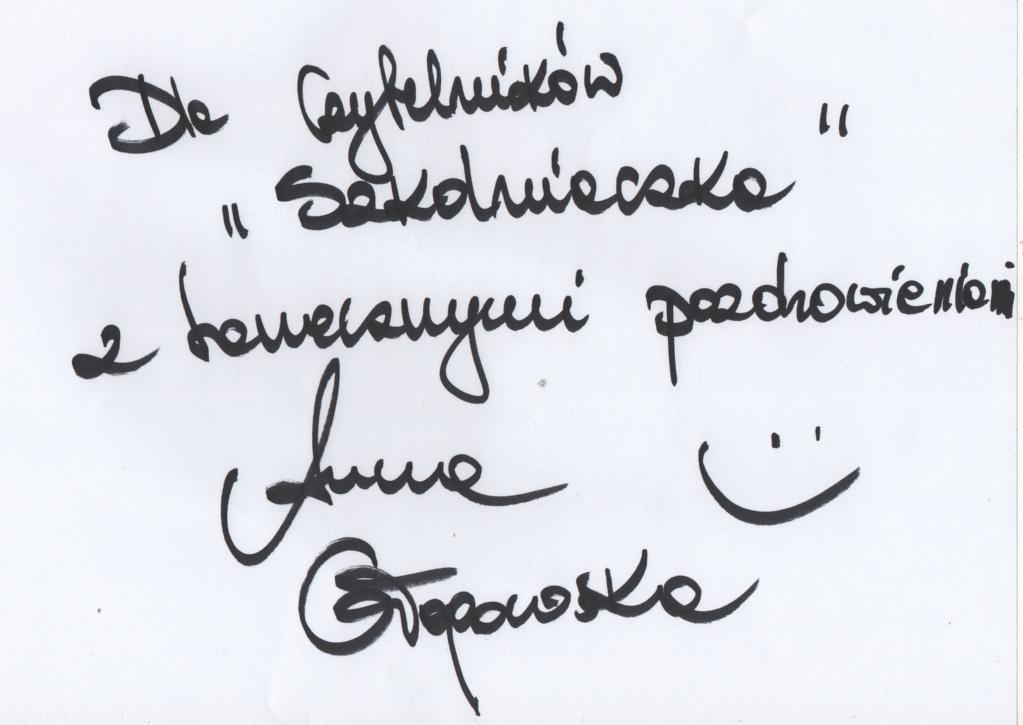 Dla Czytelników
„Szkolniaczka"
z tanecznymi pozdrowieniami
Anna
Głogowska